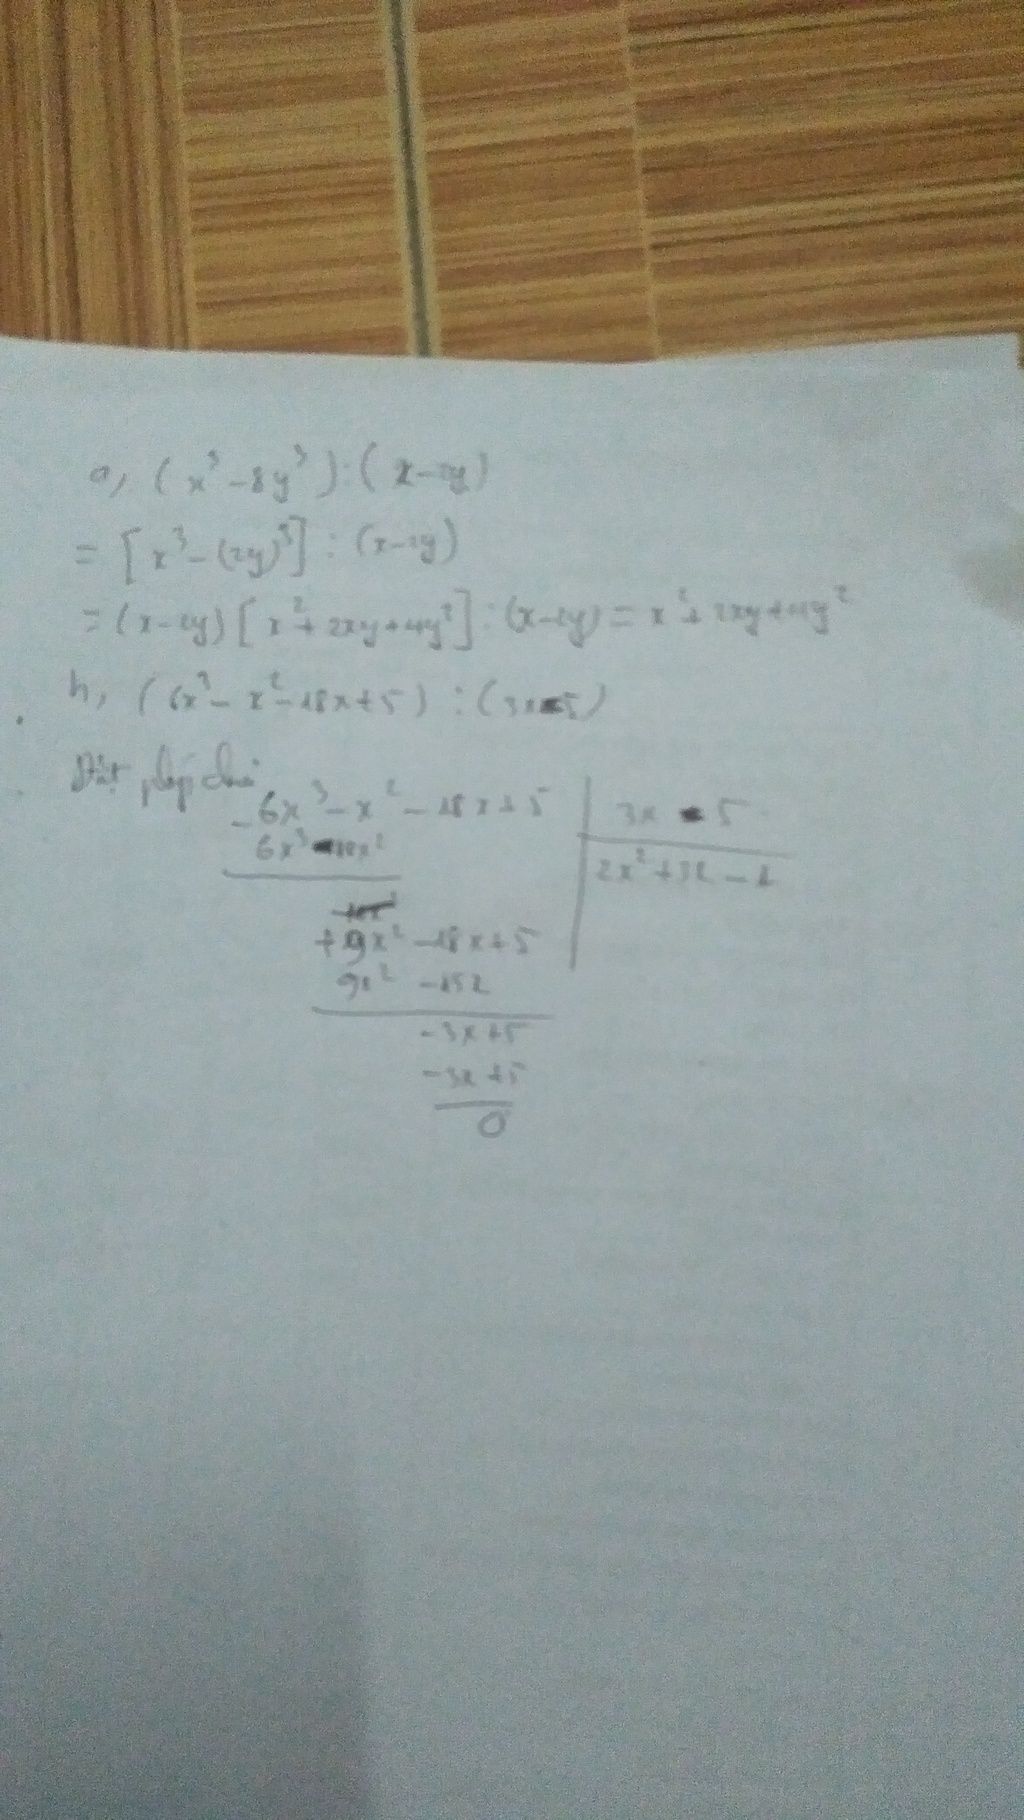 a, (x³ - 8y³) : (x - 2y)
= [x³ - (2y)³] : (x - 2y)
= (x - 2y) [x² + 2xy + 4y²] : (x - 2y) = x² + 2xy + 4y²
h, (6x³ - x² - 18x + 5) : (3x - 5)
Đặt phép chia
- 6x³ - x² - 18x + 5 | 3x - 5
6x³ - 10x² | 2x² + 3x - 1
+ 9x² - 18x + 5
9x² - 15x
- 3x + 5
- 3x + 5
0